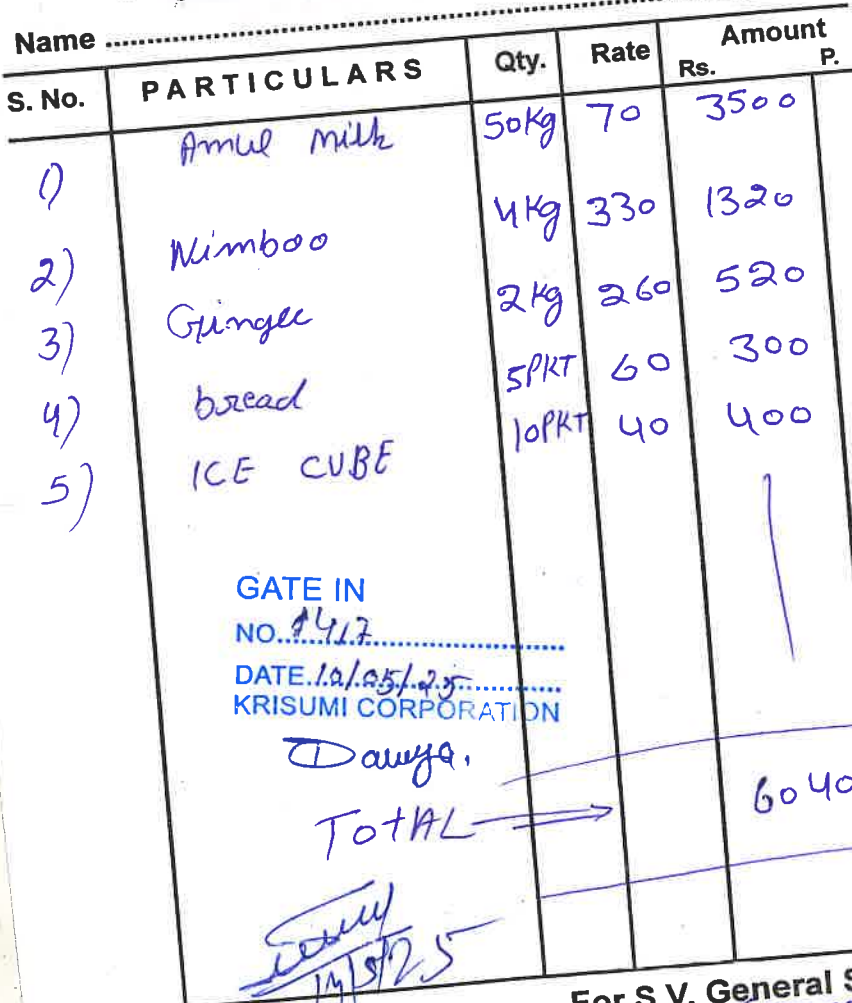 Name
S. No. PARTICULARS Qty. Rate Amount Rs. P.
1) Amul Milk 50kg 70 3500
2) Nimboo 4kg 330 1320
3) Ginger 2kg 260 520
4) bread 5PKT 60 300
5) ICE CUBE 10PKT 40 400
GATE IN
NO. 1417
DATE 10/05/25
KRISUMI CORPORATION
TotAL 6040
For S.V. General S